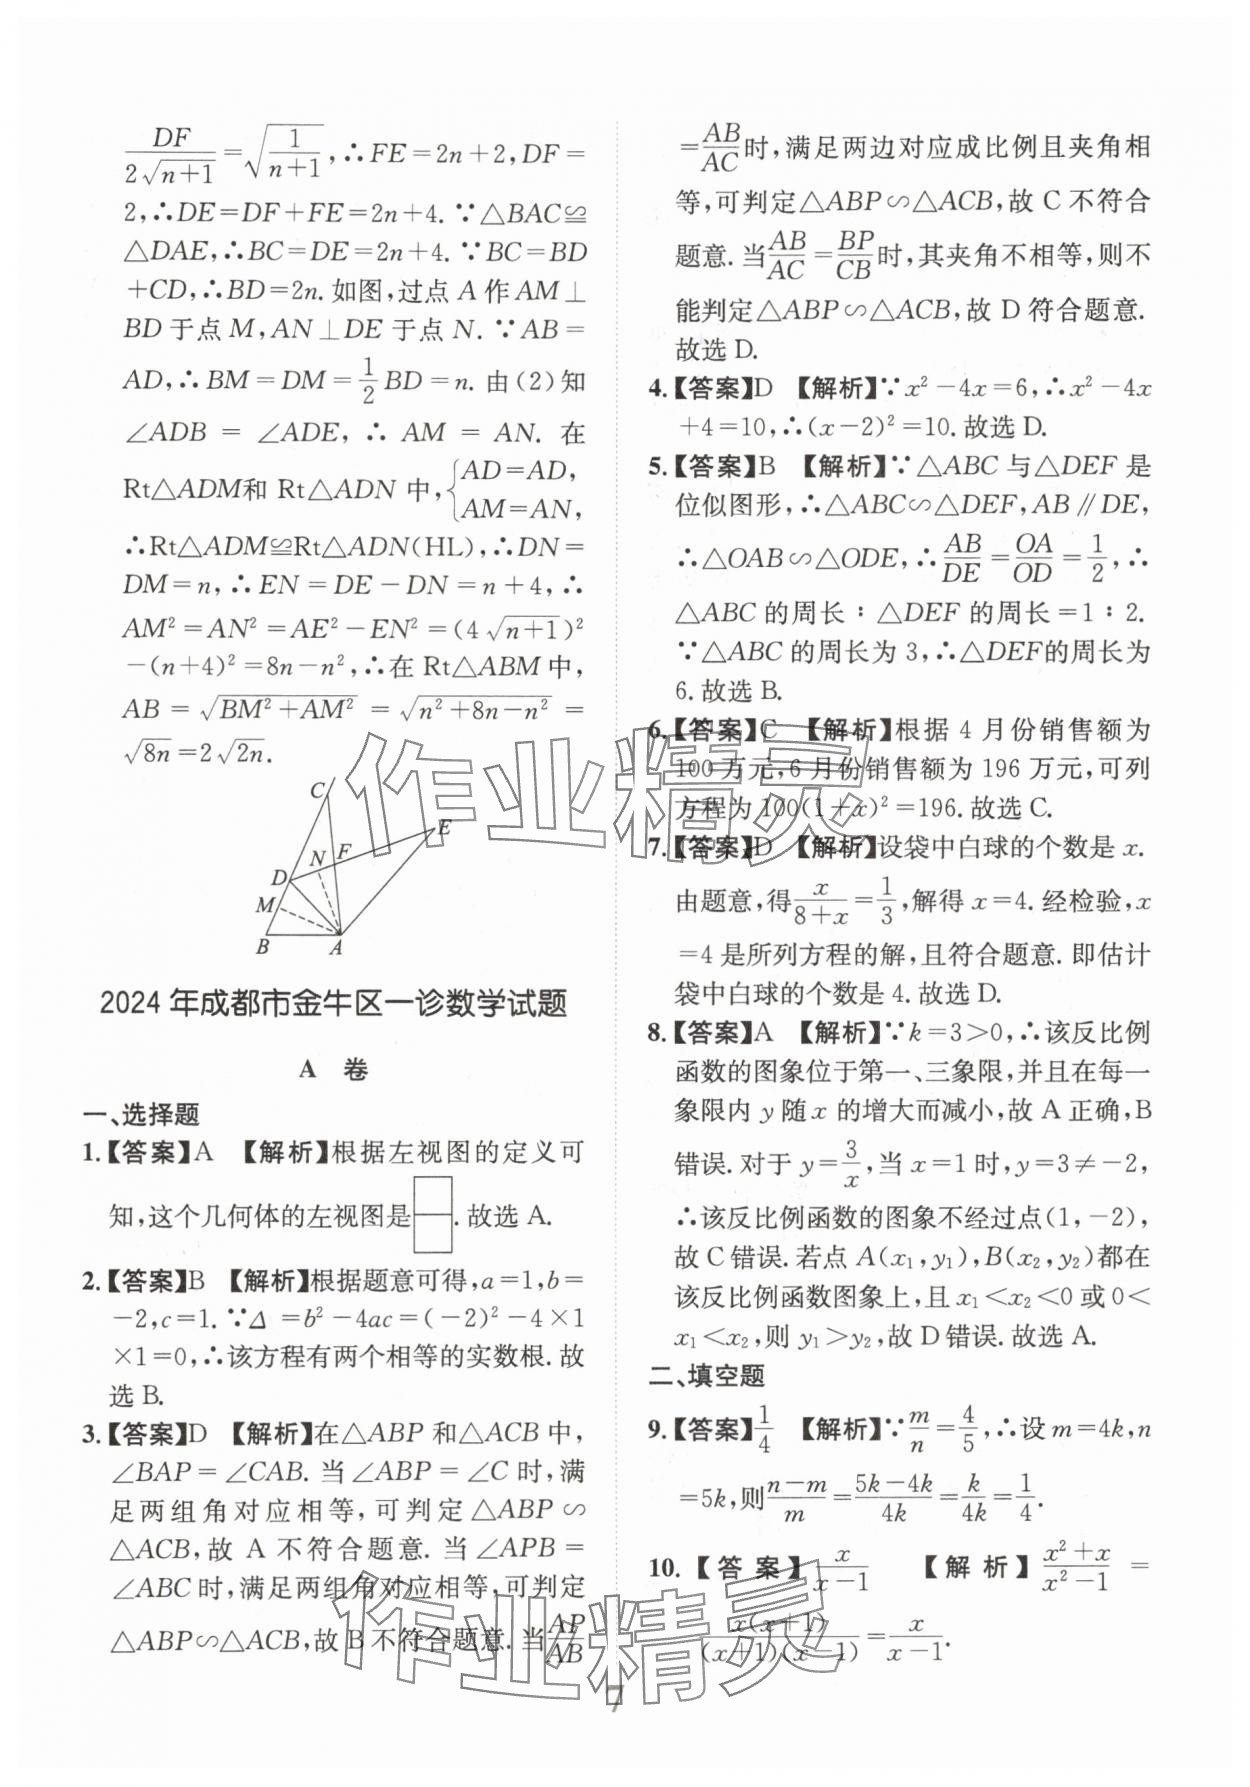 DF/(2√(n+1))=√(1/(n+1)),∴FE=2n+2,DF=
2,∴DE=DF+FE=2n+4.∵△BAC≌
△DAE,∴BC=DE=2n+4.∵BC=BD
+CD,∴BD=2n.如图,过点A作AM⊥
BD于点M,AN⊥DE于点N.∵AB=
AD,∴BM=DM=1/2BD=n.由(2)知
∠ADB=∠ADE,∴AM=AN.在
Rt△ADM和Rt△ADN中,{AD=AD,
AM=AN,
∴Rt△ADM≌Rt△ADN(HL),∴DN=
DM=n,∴EN=DE-DN=n+4,∴
AM²=AN²=AE²-EN²=(4√(n+1))²
-(n+4)²=8n-n²,∴在Rt△ABM中,
AB=√(BM²+AM²)=√(n²+8n-n²)=
√(8n)=2√(2n).
C
E
N F
D
M
B A
2024年成都市金牛区一诊数学试题
A 卷
一、选择题
1.【答案】A 【解析】根据左视图的定义可
知,这个几何体的左视图是 .故选A.
2.【答案】B 【解析】根据题意可得,a=1,b=
-2,c=1.∵Δ=b²-4ac=(-2)²-4×1
×1=0,∴该方程有两个相等的实数根.故
选B.
3.【答案】D 【解析】在△ABP和△ACB中,
∠BAP=∠CAB.当∠ABP=∠C时,满
足两组角对应相等,可判定△ABP∽
△ACB,故A不符合题意.当∠APB=
∠ABC时,满足两组角对应相等,可判定
△ABP∽△ACB,故B不符合题意.当AP/AB
=AB/AC时,满足两边对应成比例且夹角相
等,可判定△ABP∽△ACB,故C不符合
题意.当AB/AC=BP/CB时,其夹角不相等,则不
能判定△ABP∽△ACB,故D符合题意.
故选D.
4.【答案】D 【解析】∵x²-4x=6,∴x²-4x
+4=10,∴(x-2)²=10.故选D.
5.【答案】B 【解析】∵△ABC与△DEF是
位似图形,∴△ABC∽△DEF,AB∥DE,
∴△OAB∽△ODE,∴AB/DE=OA/OD=1/2,∴
△ABC的周长:△DEF的周长=1:2.
∵△ABC的周长为3,∴△DEF的周长为
6.故选B.
6.【答案】C 【解析】根据4月份销售额为
100万元,6月份销售额为196万元,可列
方程为100(1+x)²=196.故选C.
7.【答案】D 【解析】设袋中白球的个数是x.
由题意,得x/(8+x)=1/3,解得x=4.经检验,x
=4是所列方程的解,且符合题意.即估计
袋中白球的个数是4.故选D.
8.【答案】A 【解析】∵k=3>0,∴该反比例
函数的图象位于第一、三象限,并且在每一
象限内y随x的增大而减小,故A正确,B
错误.对于y=3/x,当x=1时,y=3≠-2,
∴该反比例函数的图象不经过点(1,-2),
故C错误.若点A(x₁,y₁),B(x₂,y₂)都在
该反比例函数图象上,且x₁<x₂<0或0<
x₁<x₂,则y₁>y₂,故D错误.故选A.
二、填空题
9.【答案】1/4 【解析】∵m/n=4/5,∴设m=4k,n
=5k,则(n-m)/m=(5k-4k)/4k=k/4k=1/4.
10.【答案】x/(x-1) 【解析】(x²+x)/(x²-1)=
x(x+1)/((x+1)(x-1))=x/(x-1).
作业精灵
作业精灵
7